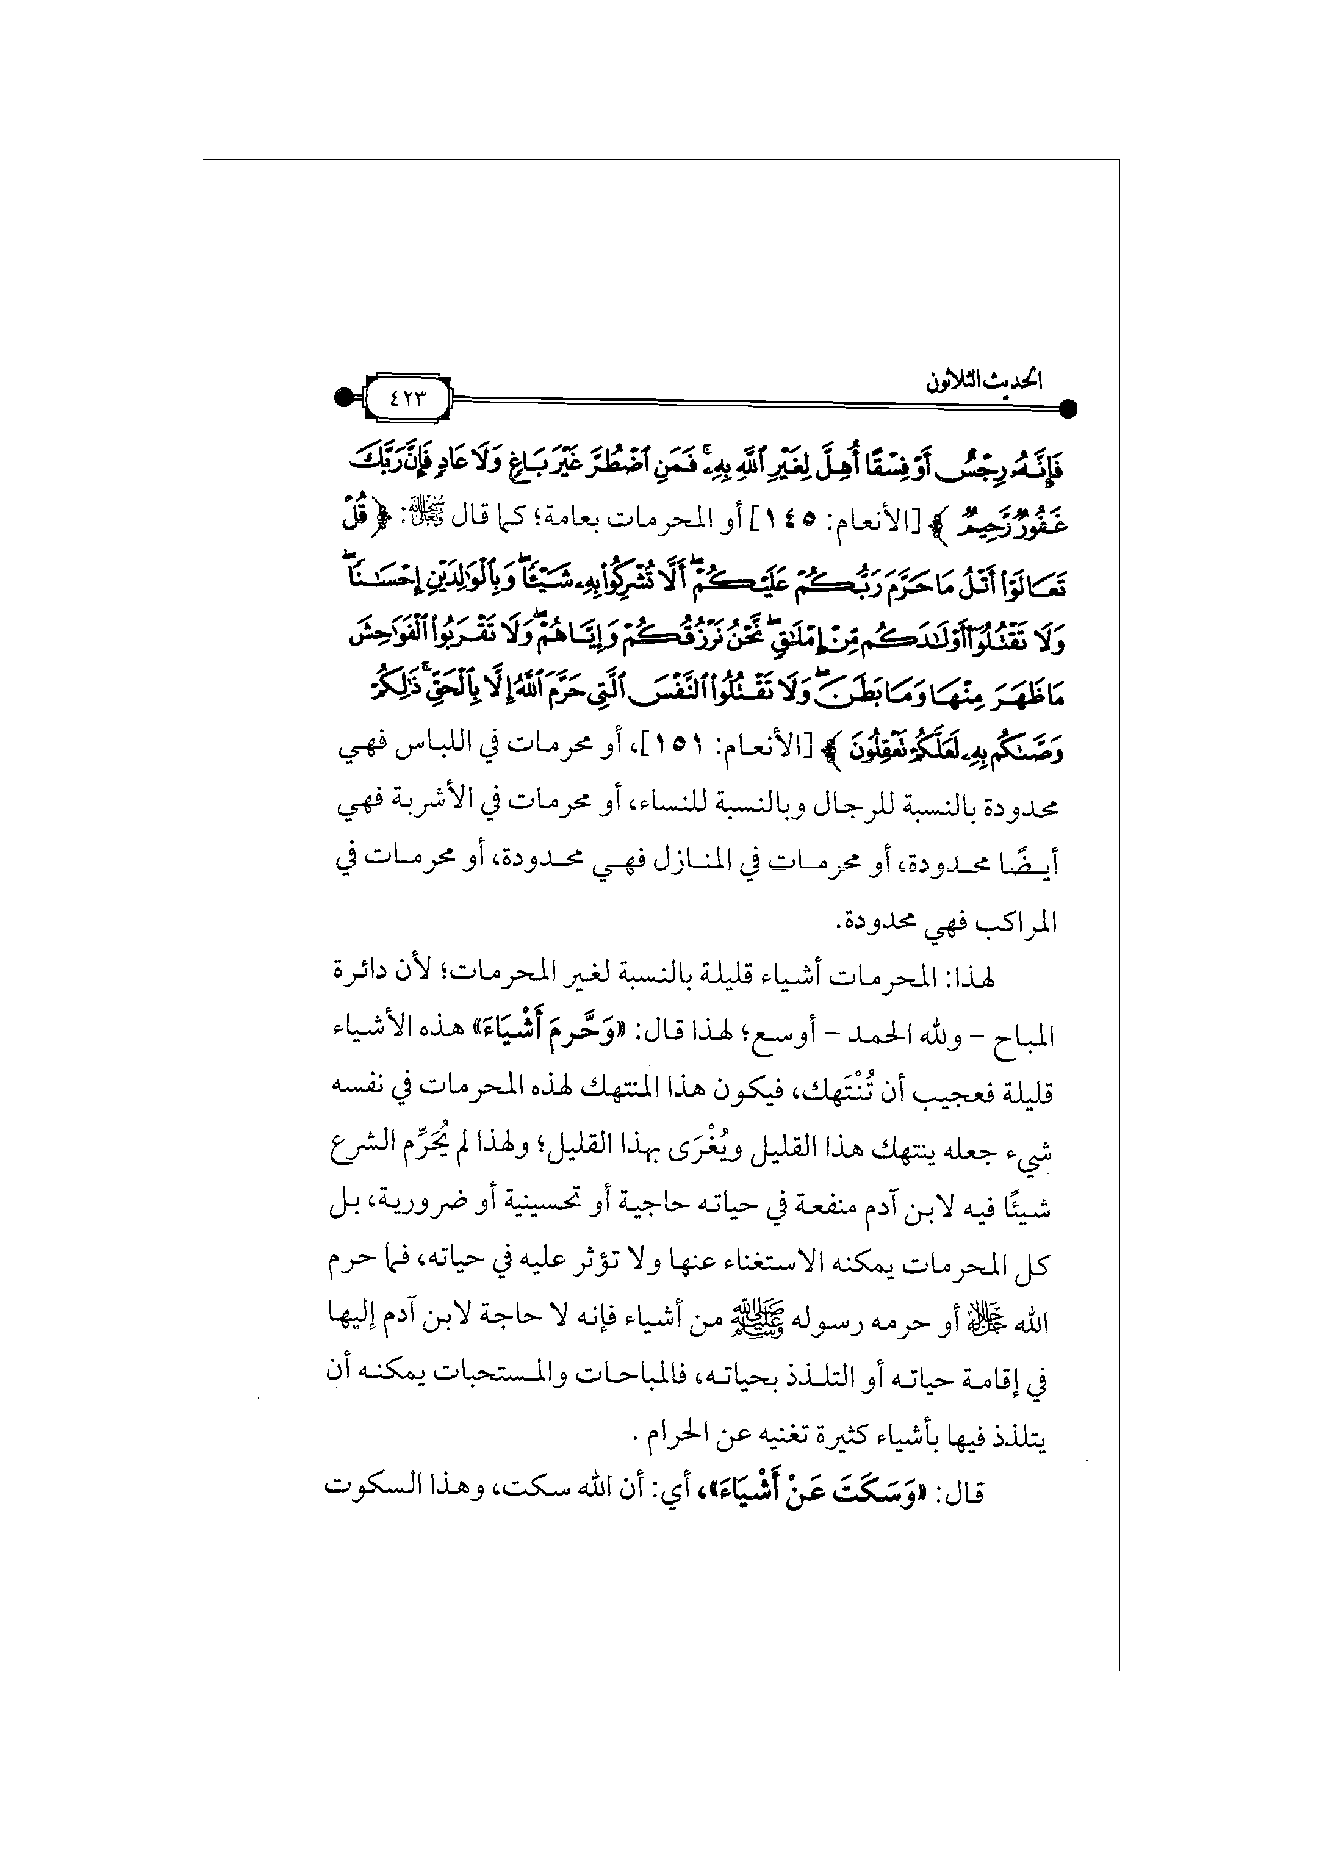 الحديث الثلاثون
٤٢٣
فَإِنَّهُۥ رِجْسٌ أَوْ فِسْقًا أُهِلَّ لِغَيْرِ ٱللَّهِ بِهِۦۚ فَمَنِ ٱضْطُرَّ غَيْرَ بَاغٍ وَلَا عَادٍ فَإِنَّ رَبَّكَ
غَفُورٌ رَّحِيمٌ ﴾ [الأنعام: ١٤٥] أو المحرمات بعامة؛ كما قال ﷻ: ﴿ قُلْ
تَعَالَوْا۟ أَتْلُ مَا حَرَّمَ رَبُّكُمْ عَلَيْكُمْۖ أَلَّا تُشْرِكُوا۟ بِهِۦ شَيْـًٔاۖ وَبِٱلْوَٰلِدَيْنِ إِحْسَٰنًاۖ
وَلَا تَقْتُلُوٓا۟ أَوْلَٰدَكُم مِّنْ إِمْلَٰقٍۖ نَّحْنُ نَرْزُقُكُمْ وَإِيَّاهُمْۖ وَلَا تَقْرَبُوا۟ ٱلْفَوَٰحِشَ
مَا ظَهَرَ مِنْهَا وَمَا بَطَنَۖ وَلَا تَقْتُلُوا۟ ٱلنَّفْسَ ٱلَّتِى حَرَّمَ ٱللَّهُ إِلَّا بِٱلْحَقِّۚ ذَٰلِكُمْ
وَصَّىٰكُم بِهِۦ لَعَلَّكُمْ تَعْقِلُونَ ﴾ [الأنعام: ١٥١]، أو محرمات في اللباس فهي
محدودة بالنسبة للرجال وبالنسبة للنساء، أو محرمات في الأشربة فهي
أيضًا محدودة، أو محرمات في المنازل فهي محدودة، أو محرمات في
المراكب فهي محدودة.
لهذا: المحرمات أشياء قليلة بالنسبة لغير المحرمات؛ لأن دائرة
المباح – ولله الحمد – أوسع؛ لهذا قال: «وَحَّرمَ أَشْيَاءَ» هذه الأشياء
قليلة فعجيب أن تُنْتَهك، فيكون هذا المنتهك لهذه المحرمات في نفسه
شيء جعله ينتهك هذا القليل ويُغْرَى بهذا القليل؛ ولهذا لم يُحَرِّم الشرع
شيئًا فيه لابن آدم منفعة في حياته حاجية أو تحسينية أو ضرورية، بل
كل المحرمات يمكنه الاستغناء عنها ولا تؤثر عليه في حياته، فما حرم
الله ﷻ أو حرمه رسوله ﷺ من أشياء فإنه لا حاجة لابن آدم إليها
في إقامة حياته أو التلذذ بحياته، فالمباحات والمستحبات يمكنه أن
يتلذذ فيها بأشياء كثيرة تغنيه عن الحرام .
قال: «وَسَكَتَ عَنْ أَشْيَاءَ»، أي: أن الله سكت، وهذا السكوت